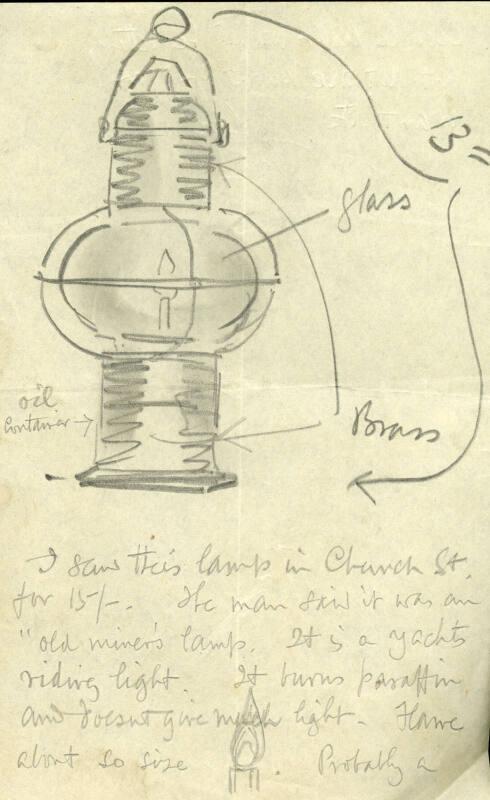 13"
glass
oil
container
Brass
I saw this lamp in Church St.
for 15/-. The man said it was an
"old miner's lamp. It is a yachts
riding light. It burns paraffin
and doesnt give much light. Flame
about so size . Probably a